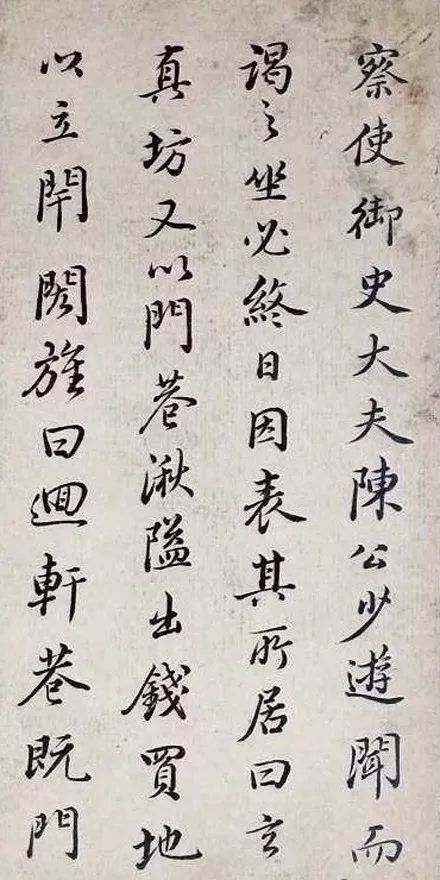 察使御史大夫陳公少遊聞而
謁之坐必終日因表其所居曰玄
真坊又以門巷湫隘出錢買地
以立閈閎旌曰迴軒巷既門